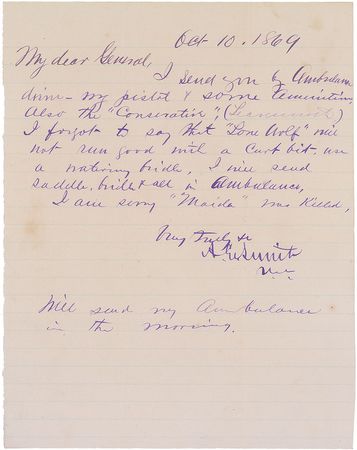 Oct 10. 1869
My dear General,
I send you by Ambulance
driver my pistol & some Ammunition
Also the "Conservative", (Leavenworth)
I forgot to say that "Lone Wolf" will
not run good with a Curb bit, use
a watering bridle, I will send
saddle, bridle & all in Ambulance,
I am sorry "Maida" was Killed,
Very Truly &c
A. J. Smith
Will send my Ambulance
in the morning.